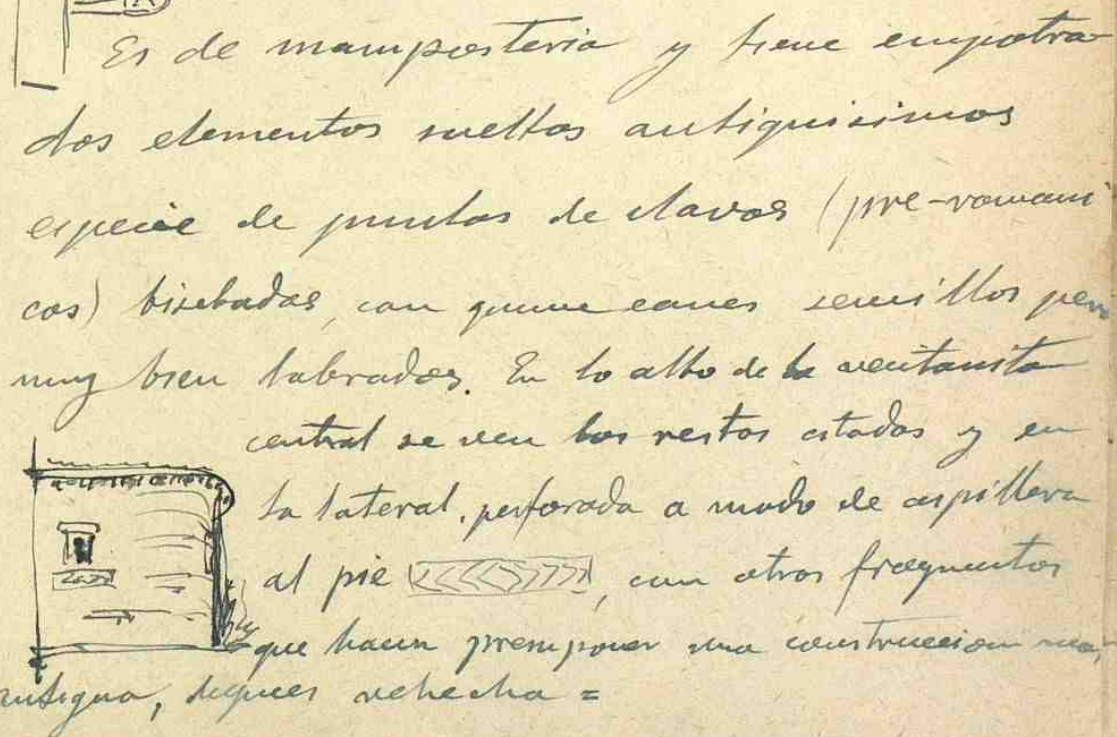 Es de mamposteria y tiene empotra-
dos elementos sueltos antiquisimos
especie de puntas de clavos (pre-romani
cos) biseladas, con sencillos pero
muy bien labrados. En lo alto de la ventanita
central se ven los restos citados y en
la lateral, perforada a modo de aspillera
al pie , con otros fragmentos
que hacen presuponer una construccion mas
antigua, despues rehecha =